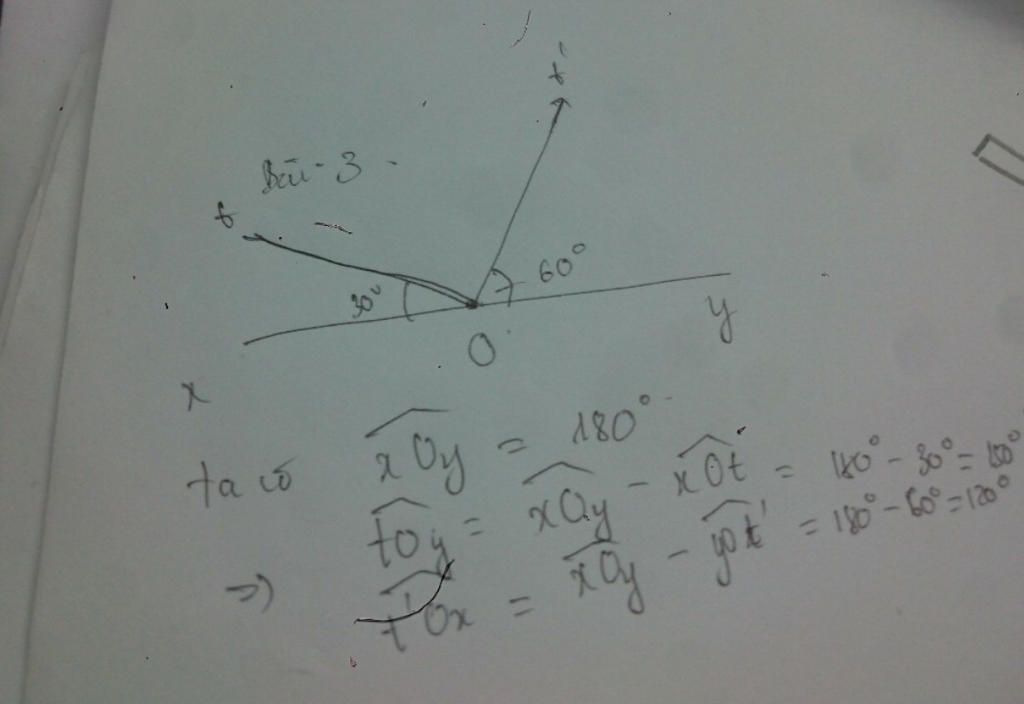 t'
Bài 3
t
30° 60°
x O y
ta có xOy = 180°
tOy = xOy - xOt = 180° - 30° = 150°
=> t'Ox = xOy - yOt' = 180° - 60° = 120°